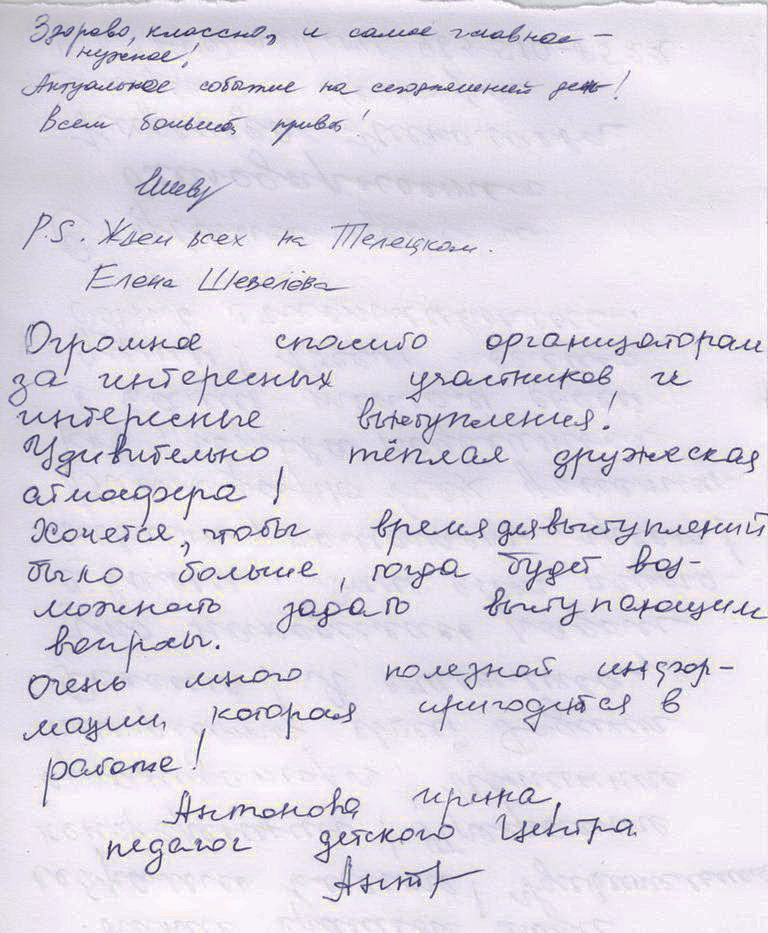 Здорово, классно, и самое главное –
нужное!
Актуальное событие на сегодняшний день!
Всем большой привет!
P.S. Ждем всех на Телецком.
Елена Шевелёва
Огромное спасибо организаторам
за интересных участников и
интересные выступления!
Удивительно тёплая дружеская
атмосфера!
Хочется, чтобы время для выступлений
было больше, тогда будет воз-
можность задать выступающим
вопросы.
Очень много полезной инфор-
мации, которая пригодится в
работе!
Антонова Ирина,
педагог детского Центра